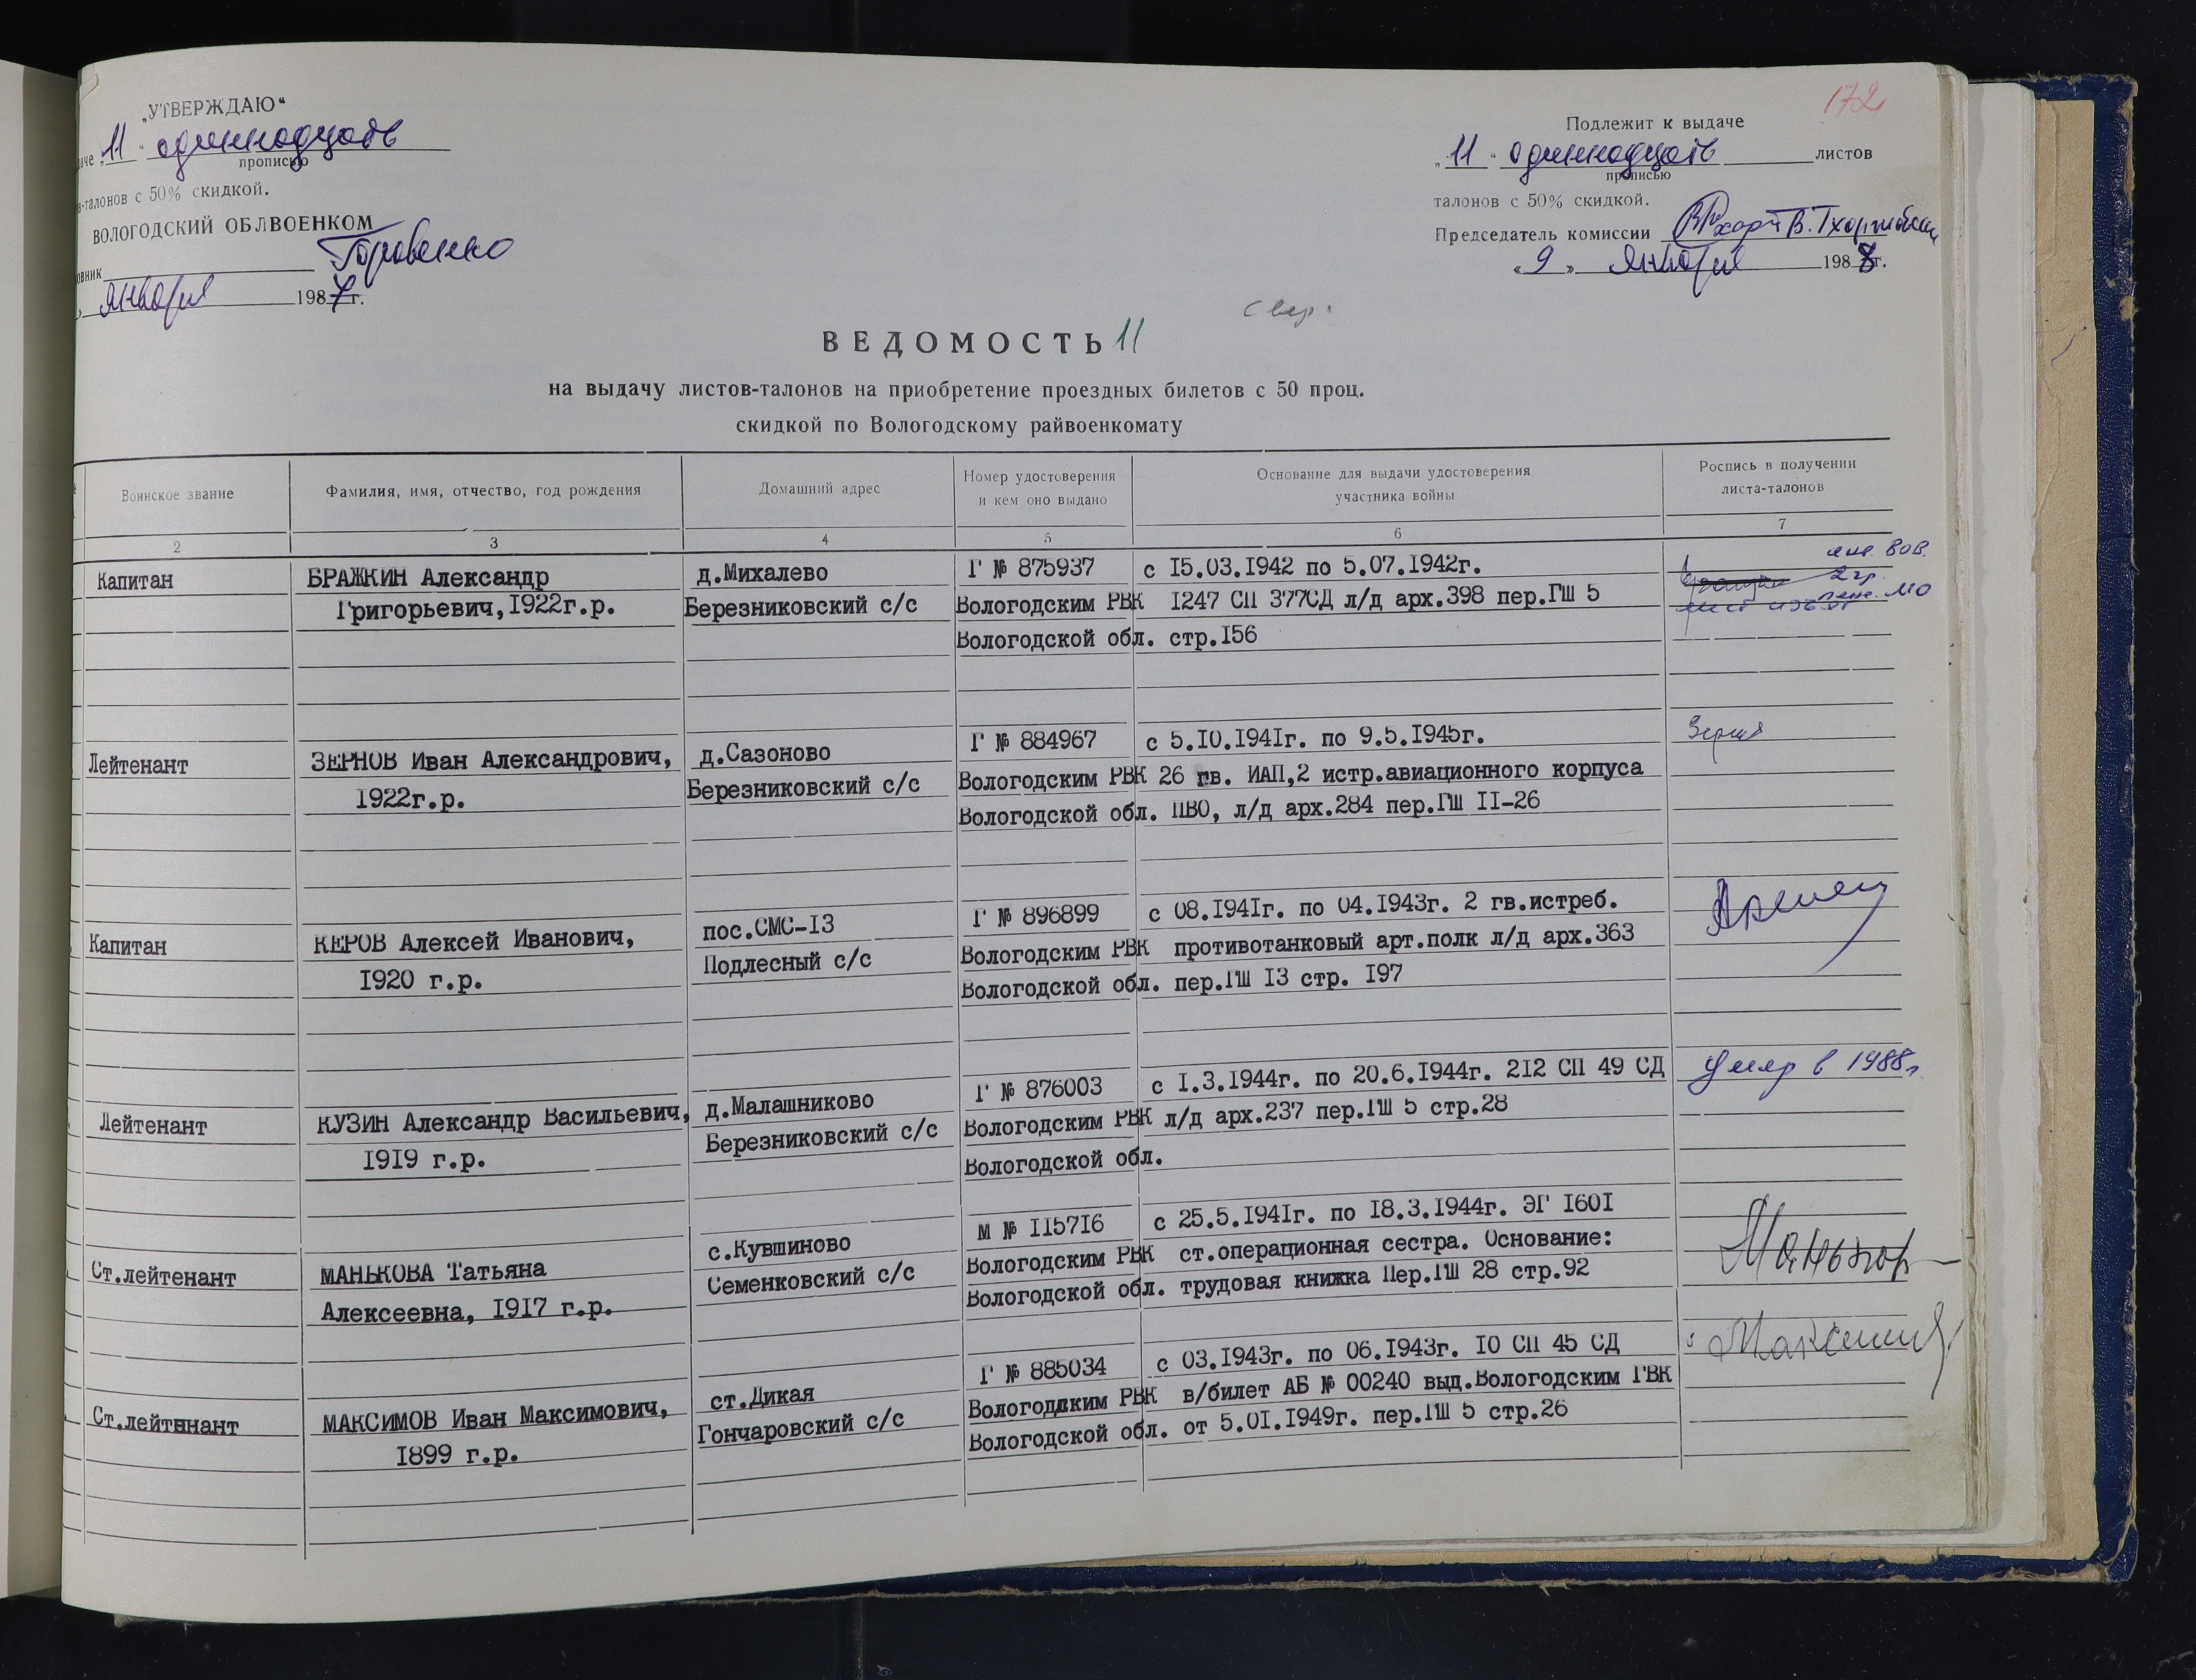 172
„УТВЕРЖДАЮ“
„11“ одиннадцать
прописью
талонов с 50% скидкой.
ВОЛОГОДСКИЙ ОБЛВОЕНКОМ
января 1987г.
Подлежит к выдаче
„11“ одиннадцать листов
прописью
талонов с 50% скидкой.
Председатель комиссии
«9» января 1988г.
ВЕДОМОСТЬ 11
на выдачу листов-талонов на приобретение проездных билетов с 50 проц.
скидкой по Вологодскому райвоенкомату
Воинское звание
Фамилия, имя, отчество, год рождения
Домашний адрес
Номер удостоверения
и кем оно выдано
Основание для выдачи удостоверения
участника войны
Роспись в получении
листа-талонов
2 3 4 5 6 7
Капитан
БРАЖКИН Александр
Григорьевич,1922г.р.
д.Михалево
Березниковский с/с
Г № 875937
Вологодским РВК
Вологодской обл.
с 15.03.1942 по 5.07.1942г.
1247 СП 377СД л/д арх.398 пер.ГШ 5
стр.156
Лейтенант
ЗЕРНОВ Иван Александрович,
1922г.р.
д.Сазоново
Березниковский с/с
Г № 884967
Вологодским РВК
Вологодской обл.
с 5.10.1941г. по 9.5.1945г.
26 гв. ИАП,2 истр.авиационного корпуса
ПВО, л/д арх.284 пер.ГШ II-26
Капитан
КЕРОВ Алексей Иванович,
1920 г.р.
пос.СМС-13
Подлесный с/с
Г № 896899
Вологодским РВК
Вологодской обл.
с 08.1941г. по 04.1943г. 2 гв.истреб.
противотанковый арт.полк л/д арх.363
пер.ГШ 13 стр. 197
Лейтенант
КУЗИН Александр Васильевич,
1919 г.р.
д.Малашниково
Березниковский с/с
Г № 876003
Вологодским РВК
Вологодской обл.
с 1.3.1944г. по 20.6.1944г. 212 СП 49 СД
л/д арх.237 пер.ГШ 5 стр.28
умер в 1988г
Ст.лейтенант
МАНЬКОВА Татьяна
Алексеевна, 1917 г.р.
с.Кувшиново
Семенковский с/с
М № 115716
Вологодским РВК
Вологодской обл.
с 25.5.1941г. по 18.3.1944г. ЭГ 1601
ст.операционная сестра. Основание:
трудовая книжка Пер.ГШ 28 стр.92
Ст.лейтннант
МАКСИМОВ Иван Максимович,
1899 г.р.
ст.Дикая
Гончаровский с/с
Г № 885034
Вологодским РВК
Вологодской обл.
с 03.1943г. по 06.1943г. 10 СП 45 СД
в/билет АБ № 00240 выд.Вологодским ГВК
от 5.01.1949г. пер.ГШ 5 стр.26